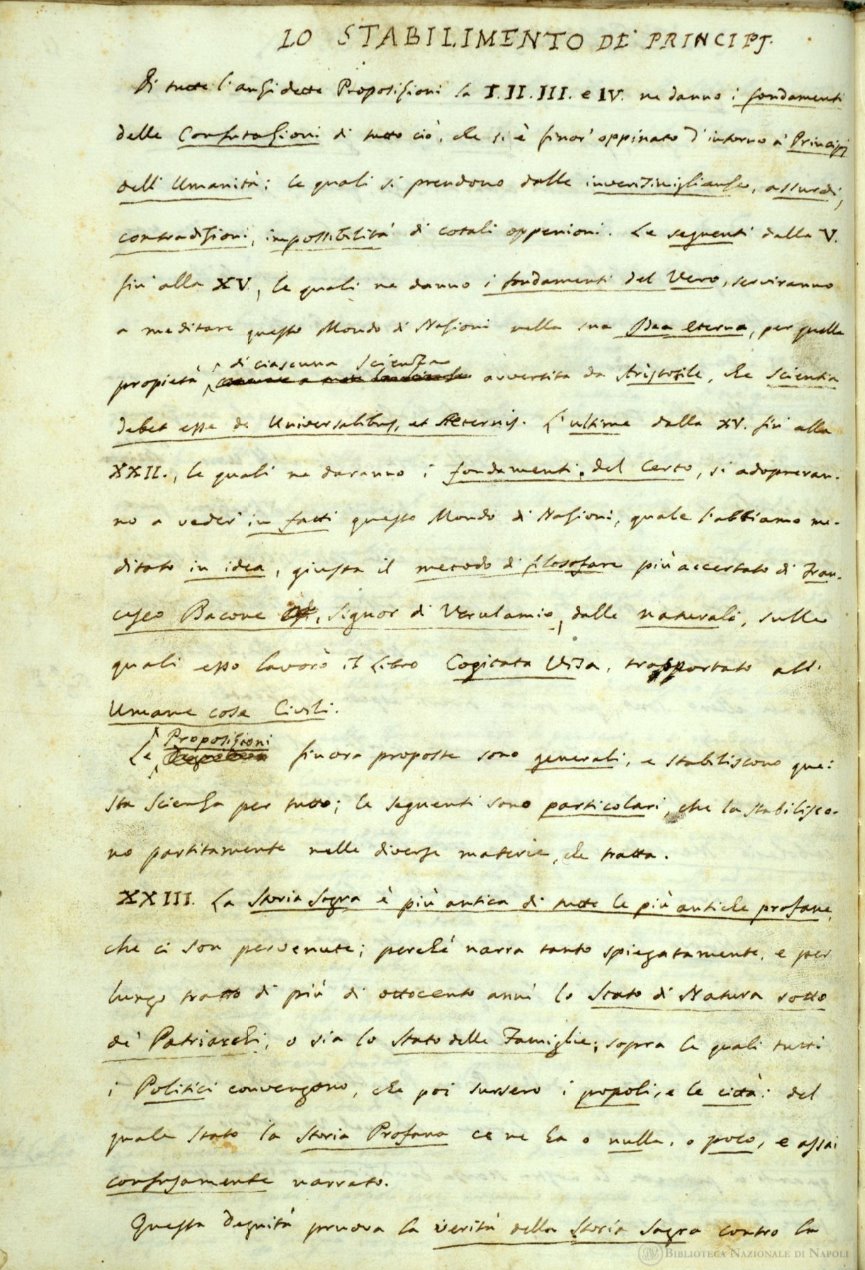 LO STABILIMENTO DE' PRINCIPJ.
Di tutte l'anzidette Proposizioni la I. II. III. e IV. ne danno i fondamenti
delle Confutazioni di tutto ciò, che si è finor' oppinato d'intorno a' Principj
dell' Umanità; le quali si prendono dalle inverisimiglianze, assurdi,
contradizioni, impossibilità di cotali oppenioni. Le seguenti dalla V.
fin' alla XV, le quali ne danno i fondamenti del Vero, serviranno
a meditare questo Mondo di Nazioni nella sua Idea eterna, per quella
di ciascuna Scienza
propietà avvertita da Aristotile, che scientia
debet esse de Universalibus, et Aeternis. L'ultime dalla XV. fin' alla
XXII., le quali ne daranno i fondamenti del Certo, si adopreran-
no a veder' in fatti questo Mondo di Nazioni, quale l'abbiamo me-
ditato in idea, giusta il metodo di filosofare più accertato di Fran-
cesco Bacone, Signor di Verulamio, dalle naturali, sulle
quali esso lavorò il Libro Cogitata Visa, trapportato all'
Umane cose Civili.
Proposizioni
Le finora proposte sono generali, e stabiliscono que-
sta Scienza per tutto; le seguenti sono particolari, che la stabilisco-
no partitamente nelle diverse materie, che tratta.
XXIII. La Storia Sagra è più antica di tutte le più antiche profane,
che ci son pervenute; perché narra tanto spiegatamente, e per
lungo tratto di più di ottocento anni lo Stato di Natura sotto
de' Patriarchi, o sia lo Stato delle Famiglie; sopra le quali tutti
i Politici convengono, che poi sursero i popoli, e le città: del
quale Stato la Storia Profana ce ne ha o nulla, o poco, e assai
confusamente narrato.
Questa degnità pruova la verità della Storia Sagra contro la
BIBLIOTECA NAZIONALE DI NAPOLI